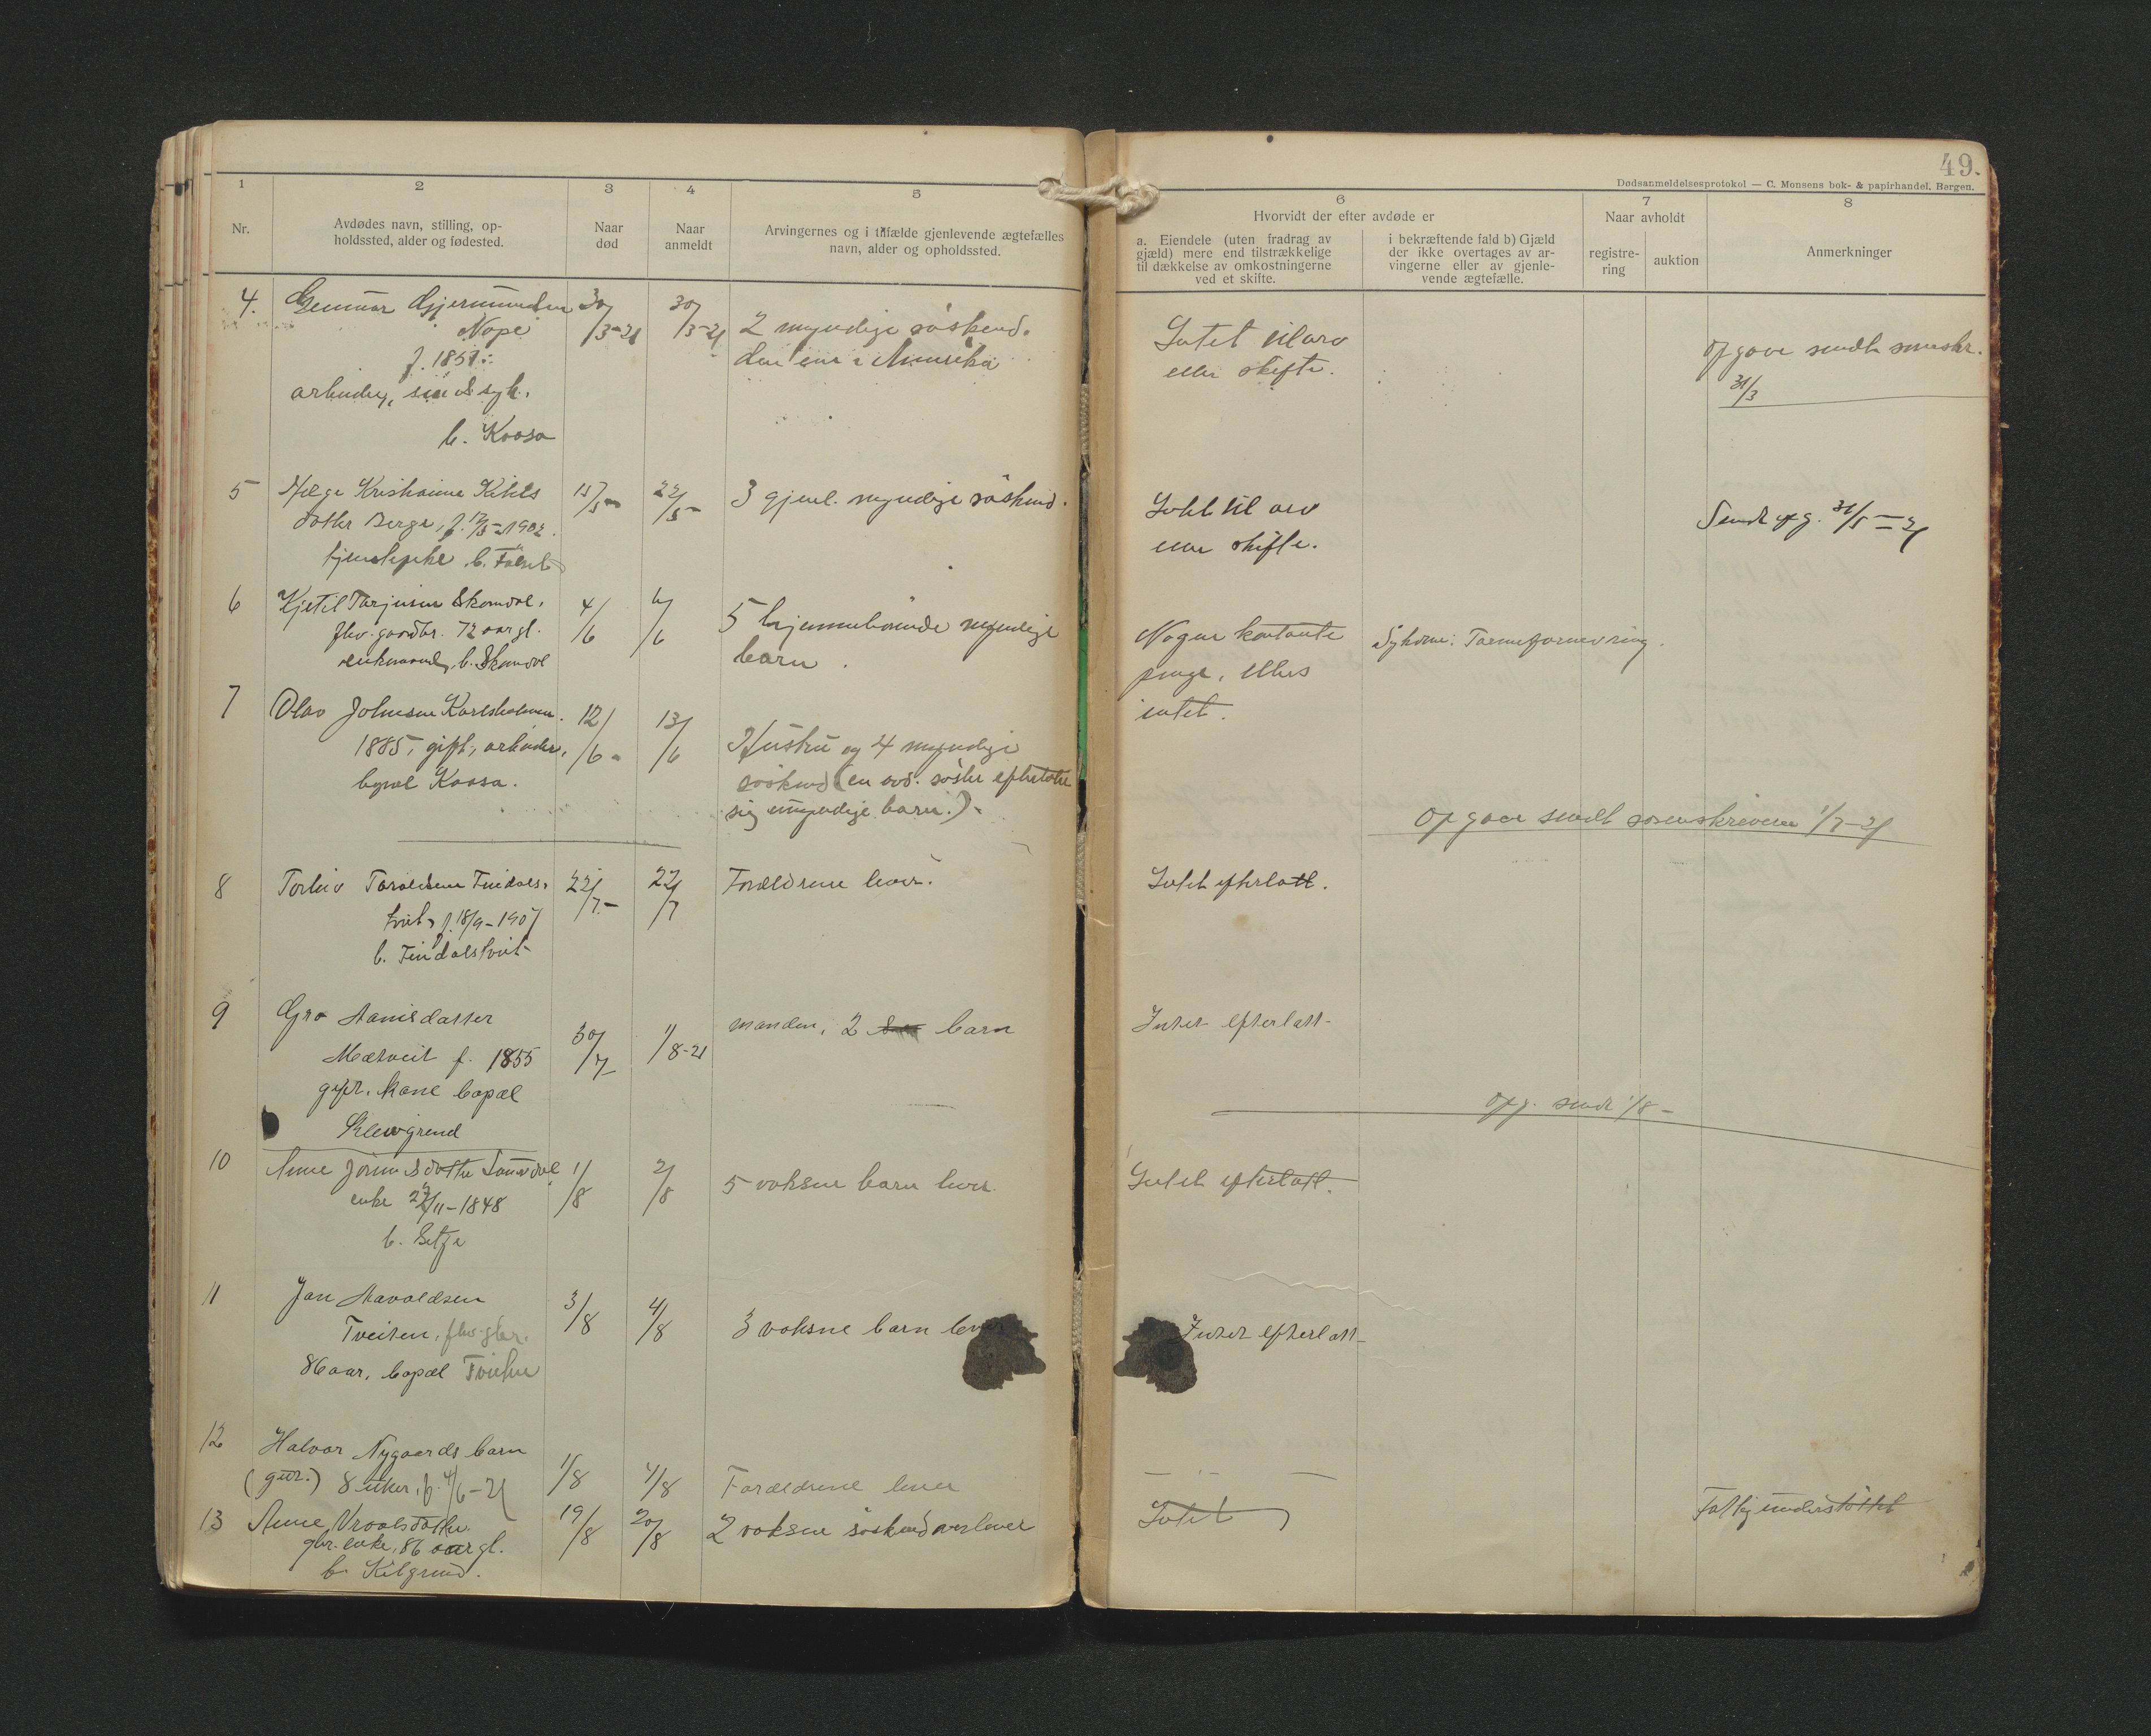 49.
Dødsanmeldelsesprotokol — C. Monsens bok- & papirhandel, Bergen.
1
2
3
4
5
6
7
8
Nr.
Avdødes navn, stilling, op-
holdssted, alder og fødested.
Naar
død
Naar
anmeldt
Arvingernes og i tilfælde gjenlevende ægtefælles
navn, alder og opholdssted.
Hvorvidt der efter avdøde er
a. Eiendele (uten fradrag av
gjæld) mere end tilstrækkelige
til dækkelse av omkostningerne
ved et skifte.
i bekræftende fald b) Gjæld
der ikke overtages av ar-
vingerne eller av gjenle-
vende ægtefælle.
Naar avholdt
registre-
ring
auktion
Anmerkninger
4.
Gunnar Gjermundsen
Nape
f. 1851
arbeider, sindssyk.
b. Kaasa
30/3-21
30/3-21
2 myndige søskend.
den ene i Amerika
Intet til arv
eller skifte.
Opgave sendt sorenskr.
31/3
5
Helge Kristiane Kitils
datter Berge, f. 17/5-1902.
tjenestepike b.
15/5-
22/5-
3 gjenl. myndige søskend.
Intet til arv
eller skifte.
Sendt opg. 31/5-21
6
Kjetil Tarjeisen Skomdal,
fhv. gaardbr. 72 aar gl.
enkemand, b. Skomdal
4/6
6/6
5 hjemmeboende myndige
barn.
Nogen kontante
penge, ellers
intet.
Sykdom: Tarmeforsnevring.
7
Olav Johnsen Karlsholmen.
1885, gift, arbeider,
bopæl Kaasa.
12/6-
13/6
Hustru og 4 myndige
søskend (en død søster efterlater
sig umyndige barn.)-
Opgave sendt sorenskriveren 1/7-21
8
Torleiv Taraldsen Findals-
tveit, f. 18/9-1907
b. Findalstveit
22/7-
27/7
Forældrene lever.
Intet efterlatt.
9
Gro Aanisdatter
Mæltveit f. 1855
gift. kone bopæl
Kleivgrend
30/7-
1/8-21
manden, 2 barn
Intet efterlatt-
opg. sendt 1/8-
10
Anne Jønnsdotter Sanddal
enke 27/11-1848
b. Betze
1/8
2/8
5 voksne barn lever
Intet efterlatt.
11
Jon Aavaldsen
Tveiten, fhv. gbr.
86 aar, bopæl Tveiten
3/8
4/8
3 voksne barn lever
Intet efterlatt-
12
Halvor Nygaards barn
(gut.) 8 uker, f. 4/6-21
1/8
4/8
Forældrene lever
— " —
13
Anne Vraalsdotter.
gbr. enke, 86 aar gl.
b. Kilgrend.
19/8
20/8
2 voksne søskend overlever
Intet
Fattigunderstøttet